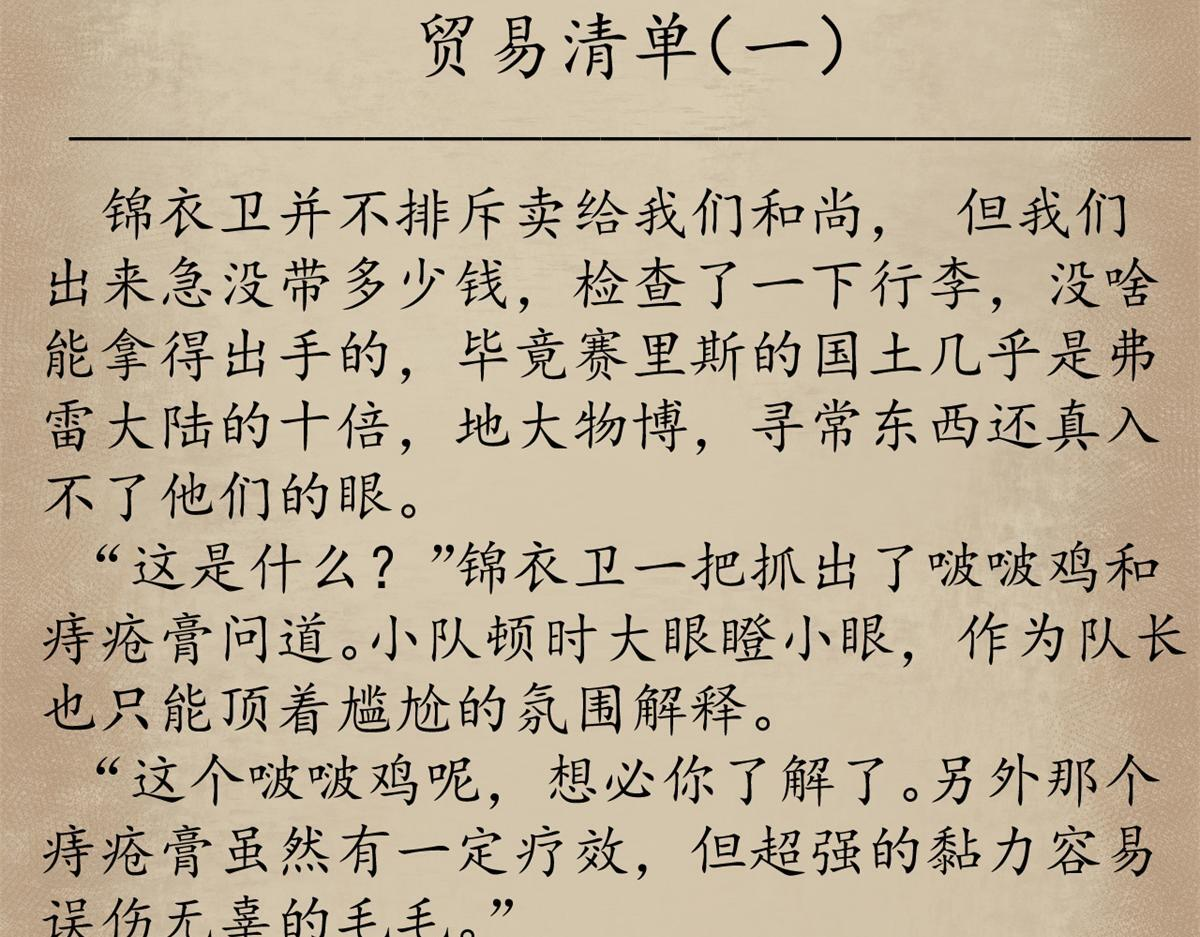 贸易清单(一)
锦衣卫并不排斥卖给我们和尚， 但我们
出来急没带多少钱，检查了一下行李，没啥
能拿得出手的，毕竟赛里斯的国土几乎是弗
雷大陆的十倍，地大物博，寻常东西还真入
不了他们的眼。
“这是什么？”锦衣卫一把抓出了啵啵鸡和
痔疮膏问道。小队顿时大眼瞪小眼，作为队长
也只能顶着尴尬的氛围解释。
“这个啵啵鸡呢，想必你了解了。另外那个
痔疮膏虽然有一定疗效，但超强的黏力容易
误伤无辜的毛毛。”